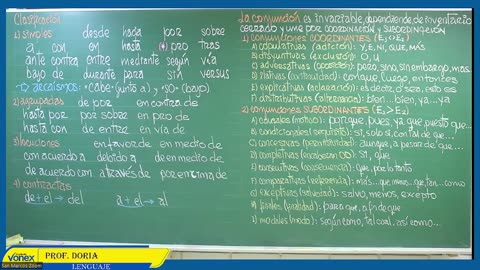 Clasificación
1) simples desde hacia por sobre
a con en hasta pro tras
ante contra entre mediante según vía
bajo de durante para sin versus
arcaísmos: *cabe (junto a), *so (bajo)
2) agrupadas de por en contra de
hasta por por sobre en pro de
hasta con de entre en vía de
3) locuciones en favor de en medio de
con acuerdo a debido a de en medio de
de acuerdo con a través de por encima de
4) contractas
de + el → del a + el → al
La conjunción es invariable, dependiente, de inventario
cerrado y une por coordinación y subordinación
1) conjunciones COORDINANTES (E1, E2)
a) copulativas (adición): y, e, ni, que, más
b) disyuntivas (exclusión): o, u
c) adversativas (oposición): pero, sino, sin embargo, mas
d) ilativas (continuidad): conque, luego, entonces
e) explicativas (aclaración): es decir, o sea, esto es
f) distributivas (alternancia): bien... bien, ya...ya
2) conjunciones SUBORDINANTES (E1 > E2)
a) causales (motivo): porque, pues, ya que, puesto que
b) condicionales (requisito): si, solo si, con tal de que...
c) concesivas (permisividad): aunque, a pesar de que...
d) completivas (encabezan OD): si, que
e) consecutivas (consecuencia): que, por lo tanto
f) comparativas (referencia): más... que, menos... que, tan... como
g) exceptivas (salvedad): salvo, menos, excepto
h) finales (finalidad): para que, a fin de que
i) modales (modo): según como, tal cual, así como...
VONEX
San Marcos Zoom
PROF. DORIA
LENGUAJE